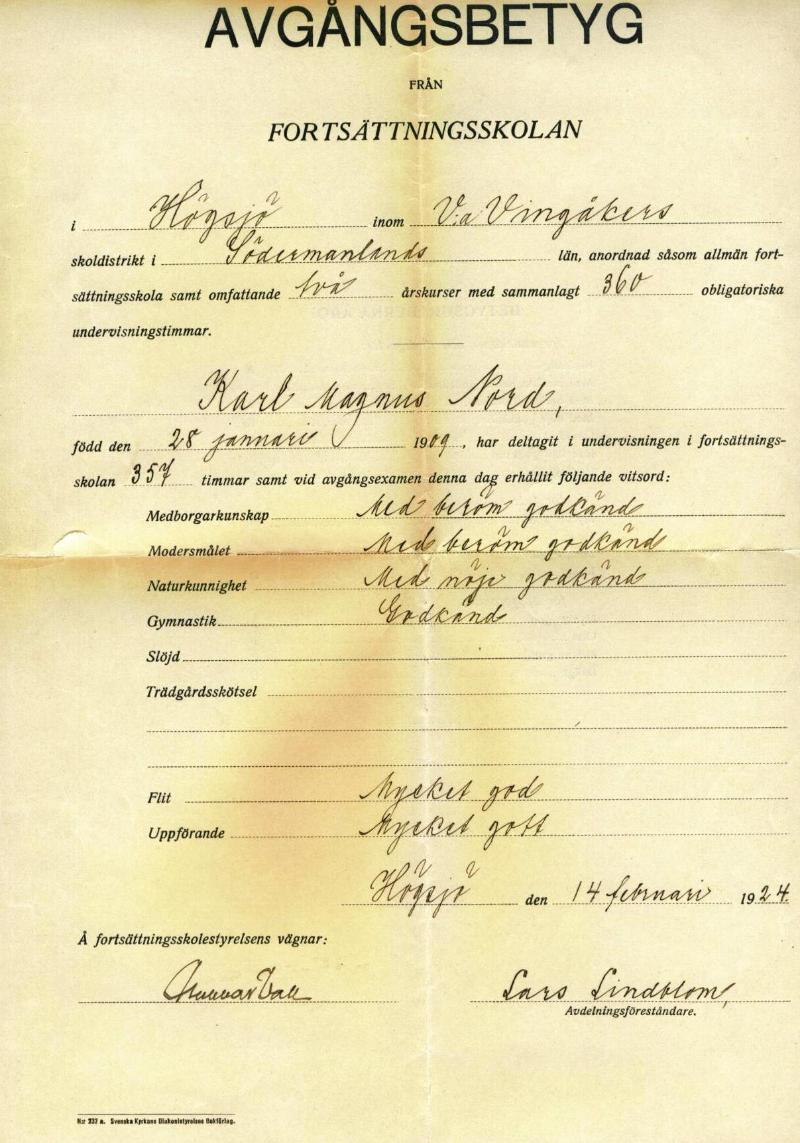 AVGÅNGSBETYG
FRÅN
FORTSÄTTNINGSSKOLAN
i Högsjö inom V:a Vingåkers
skoldistrikt i Södermanlands län, anordnad såsom allmän fort-
sättningsskola samt omfattande två årskurser med sammanlagt 360 obligatoriska
undervisningstimmar.
Karl Magnus Nord,
född den 28 januari 1909, har deltagit i undervisningen i fortsättnings-
skolan 357 timmar samt vid avgångsexamen denna dag erhållit följande vitsord:
Medborgarkunskap Med beröm godkänd
Modersmålet Med beröm godkänd
Naturkunnighet Med nöje godkänd
Gymnastik Godkänd
Slöjd
Trädgårdsskötsel
Flit Mycket god
Uppförande Mycket gott
Högsjö den 14 februari 1924.
Å fortsättningsskolestyrelsens vägnar:
Gunnar Lars Lindblom,
Avdelningsföreståndare.
N:r 232 a. Svenska Kyrkans Diakonistyrelses Bokförlag.